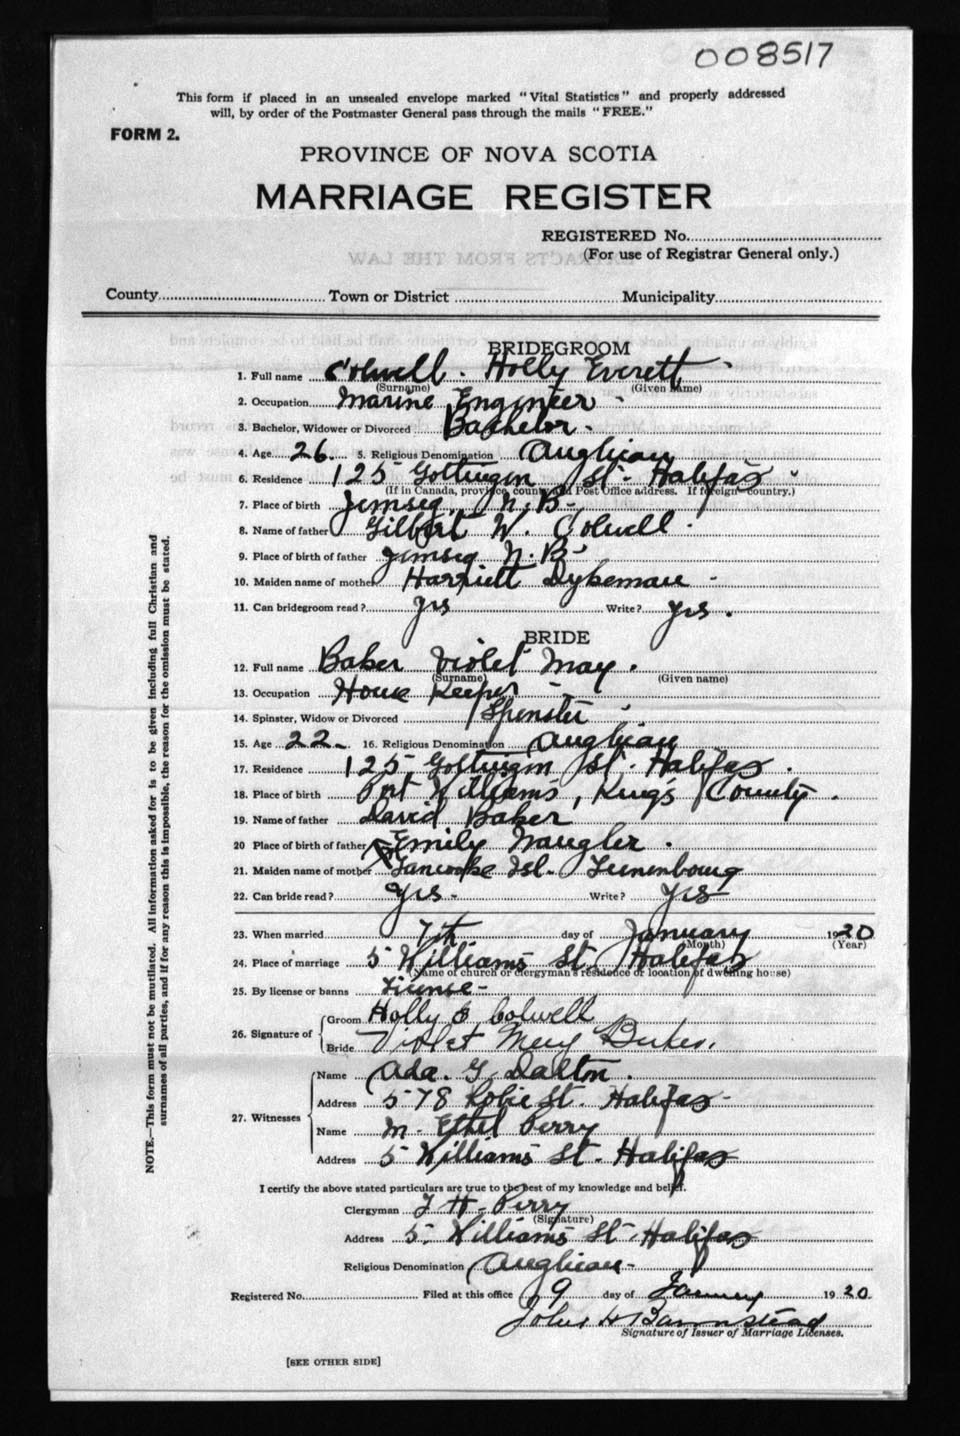 008517
This form if placed in an unsealed envelope marked "Vital Statistics" and properly addressed
will, by order of the Postmaster General pass through the mails "FREE."
FORM 2.
PROVINCE OF NOVA SCOTIA
MARRIAGE REGISTER
REGISTERED No.
(For use of Registrar General only.)
EXTRACTS FROM THE LAW
County Town or District Municipality
BRIDEGROOM
1. Full name Colwell. Holly Everett
(Surname) (Given name)
2. Occupation Marine Engineer
3. Bachelor, Widower or Divorced Bachelor.
4. Age 26. 5. Religious Denomination Anglican
6. Residence 125 Gottingen St. Halifax
(If in Canada, province, county and Post Office address. If foreign country.)
7. Place of birth Jemseg, N.B.
8. Name of father Gilbert W. Colwell
9. Place of birth of father Jemseg N.B.
10. Maiden name of mother Harriett Dykeman
11. Can bridegroom read? yes Write? yes.
BRIDE
12. Full name Baker Violet May.
(Surname) (Given name)
13. Occupation House Keeper
14. Spinster, Widow or Divorced Spinster
15. Age 22 16. Religious Denomination Anglican
17. Residence 125 Gottingen St. Halifax.
18. Place of birth Port Williams, Kings County.
19. Name of father David Baker
20 Place of birth of father Emily Naugler.
21. Maiden name of mother Tancooke Isl. Lunenbourg
22. Can bride read? Yes Write? Yes
23. When married 7th day of January 1920
(Month) (Year)
24. Place of marriage 5 Williams St. Halifax
(Name of church or clergyman's residence or location of dwelling house)
25. By license or banns License
26. Signature of Groom Holly E Colwell
Bride Violet May Baker.
27. Witnesses Name Ada. G. Dalton.
Address 578 Robie St. Halifax
Name M. Ethel Perry
Address 5 Williams St. Halifax
I certify the above stated particulars are true to the best of my knowledge and belief.
Clergyman T. H. Perry
(Signature)
Address 5. Williams St. Halifax
Religious Denomination Anglican
Registered No. Filed at this office 9 day of January 1920.
John H Barnstead
Signature of Issuer of Marriage Licenses.
[SEE OTHER SIDE]
NOTE.—This form must not be mutilated. All information asked for is to be given including full Christian and
surnames of all parties, and if for any reason this is impossible, the reason for the omission must be stated.